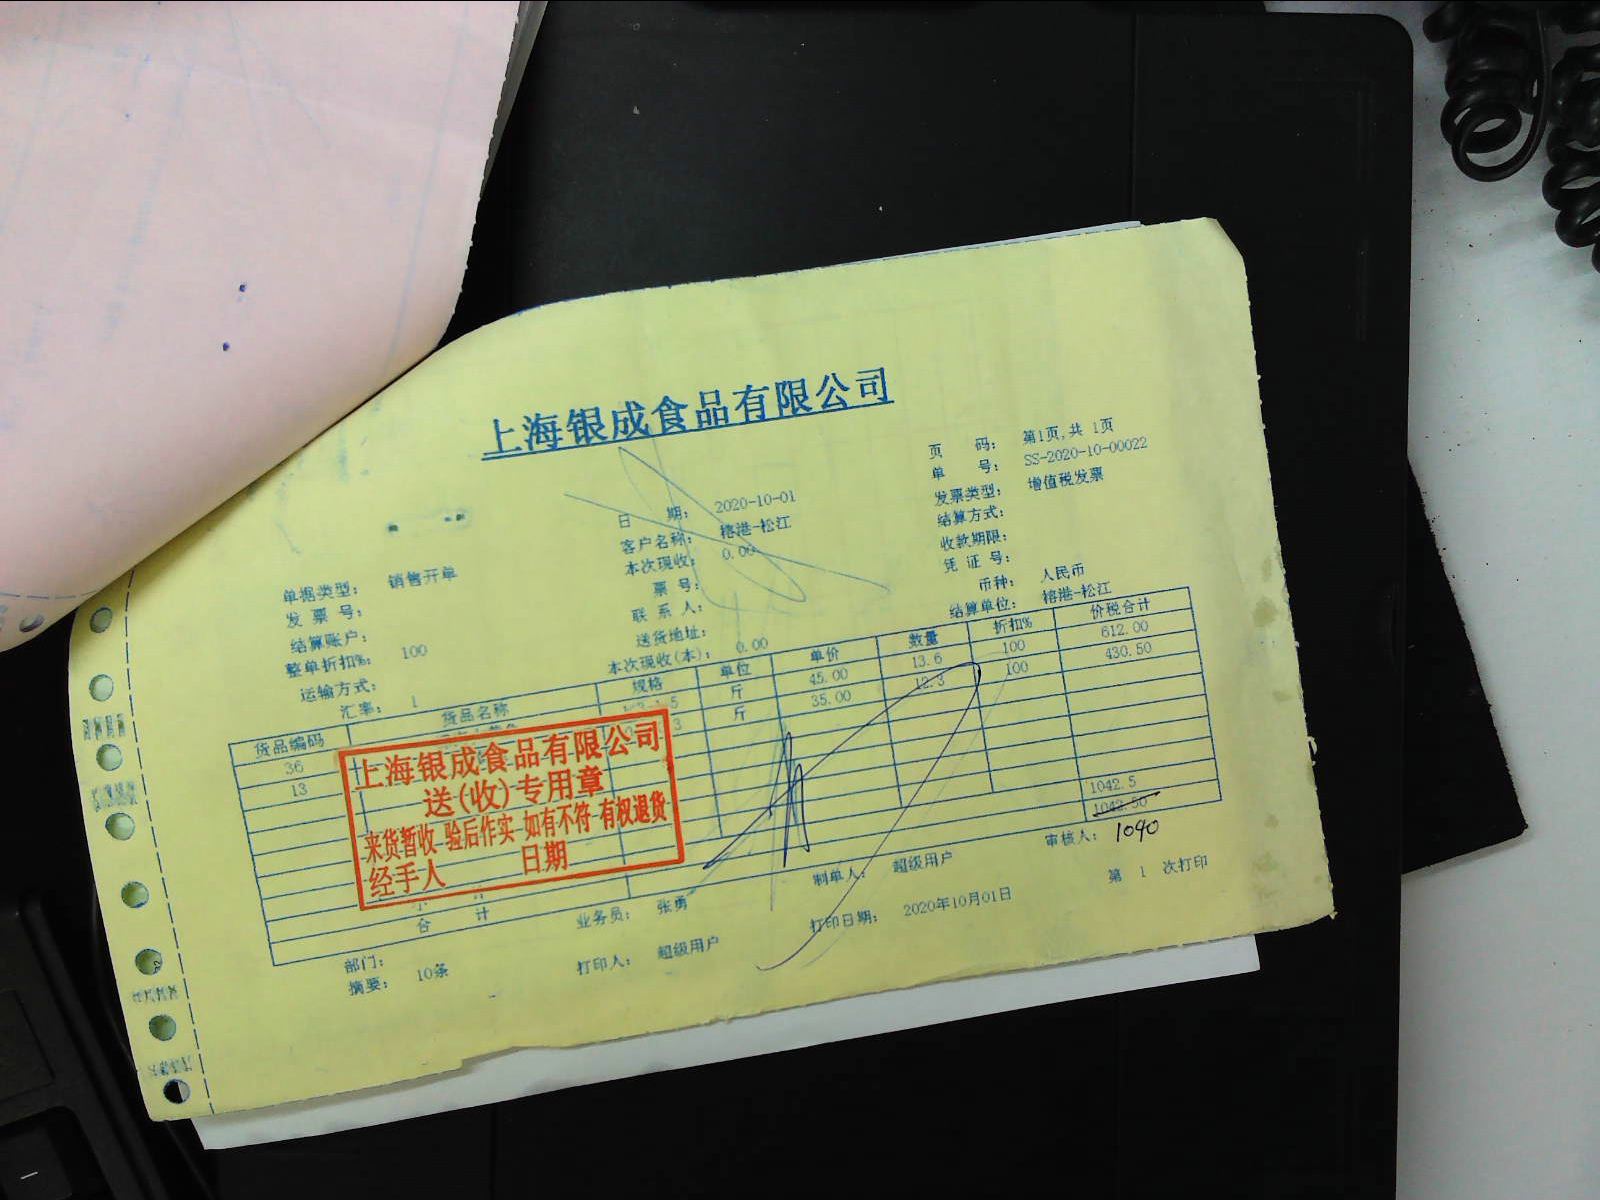 上海银成食品有限公司
页 码: 第1页,共 1页
单 号: SS-2020-10-00022
日 期: 2020-10-01
发票类型: 增值税发票
客户名称: 榕港-松江
结算方式:
本次现收: 0.00
收款期限:
单据类型: 销售开单
票 号:
凭 证 号:
发 票 号:
联 系 人:
币种: 人民币
结算账户:
送货地址:
结算单位: 榕港-松江
整单折扣%: 100
本次现收(本): 0.00
运输方式:
汇率: 1
货品编码 货品名称 规格 单位 单价 数量 折扣% 价税合计
36 斤 45.00 13.6 100 612.00
13 斤 35.00 12.3 100 430.50
上海银成食品有限公司
送(收)专用章
来货暂收 验后作实 如有不符 有权退货
经手人 日期
小 计 1042.5
合 计 1042.50
1040
部门: 业务员: 张勇 制单人: 超级用户 审核人:
摘要: 10条 打印人: 超级用户 打印日期: 2020年10月01日 第 1 次打印